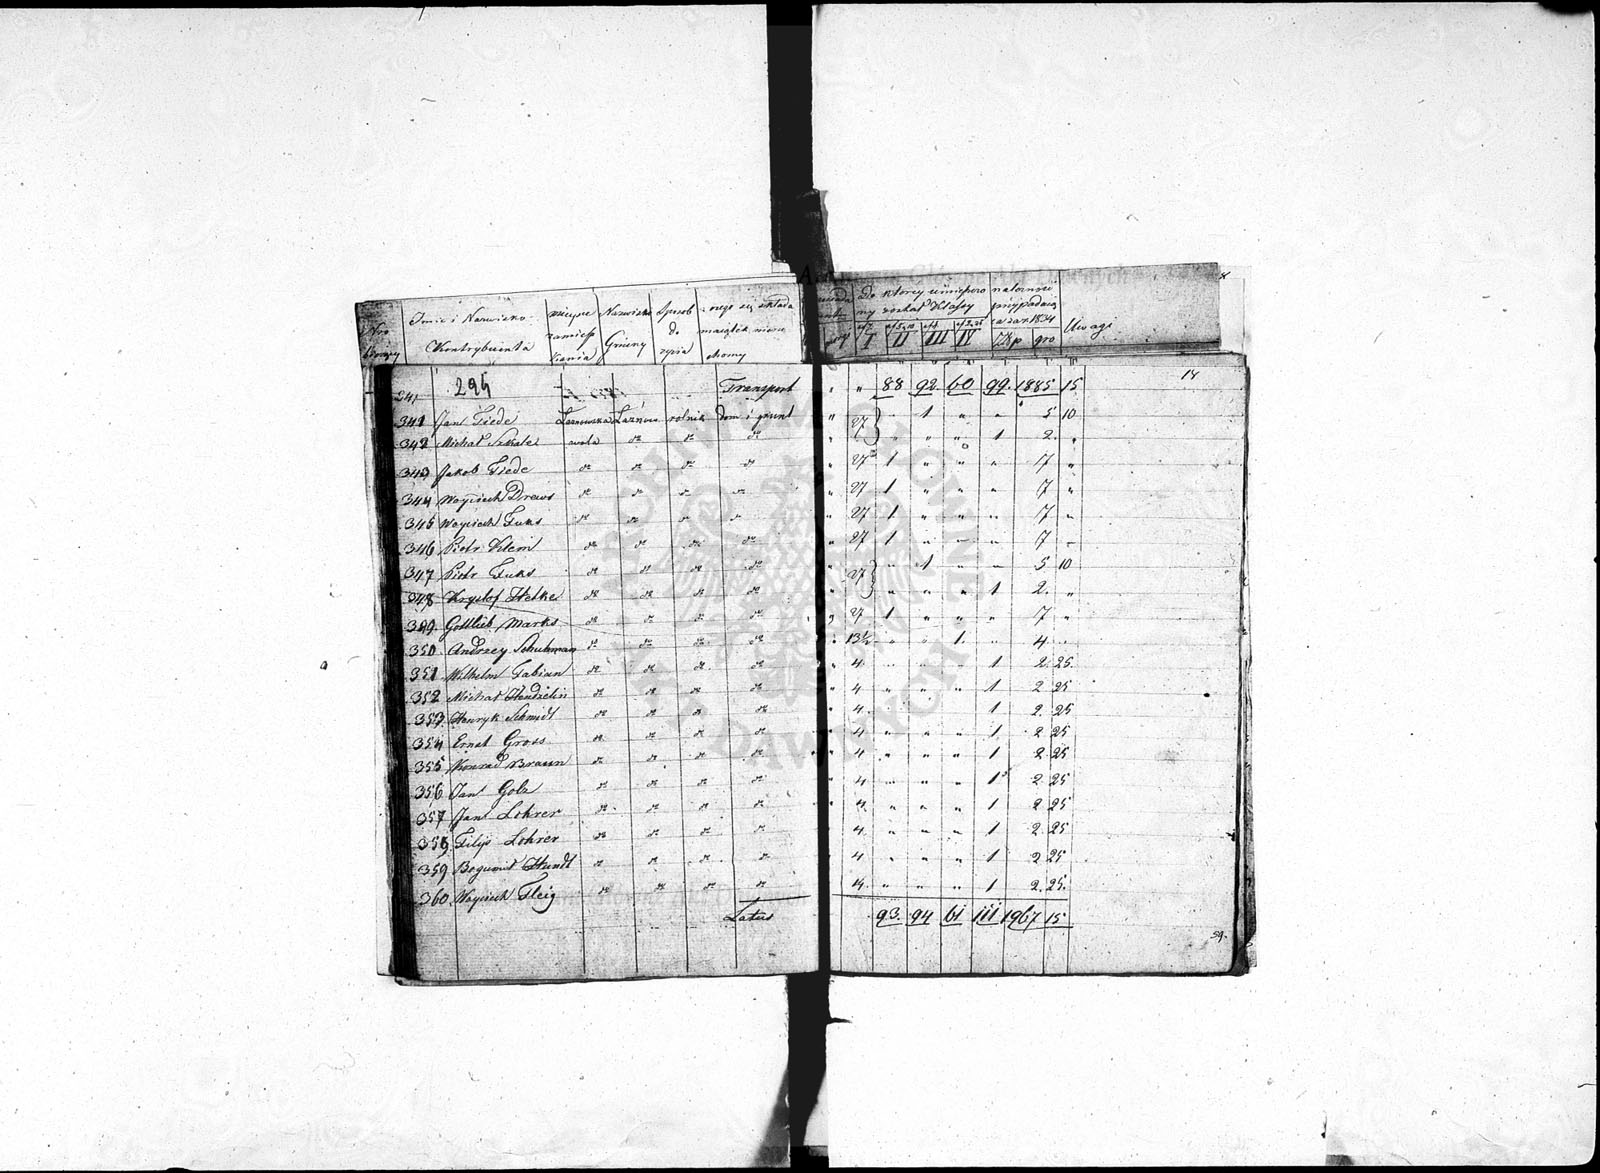 Nro bieżący | Imie i Nazwisko Kontrybuenta | mieysce zamiesz kania | Nazwisko Gminy | Sposób do życia | czego się składa maiątek nieru chomy | Do którey umieszczo ny został Klassy I II III IV | należność przypadaią za rok 1834 Złp gro | Uwagi
241 | 294 | Transport | " | " | 88 | 92 | 60 | 99 | 1885 | 15 | 18
341 | Jan Tiede | Łaznowska | Łaznów | rolnik | Dom i grunt | " | 27 | " | 1 | " | " | 5 | 10
342 | Michał Szkale | wola | do | do | do | " | " | " | " | 1 | 2 | "
343 | Jakob Tiede | do | do | do | do | " | 27 | 1 | " | " | " | 17 | "
344 | Woyciech Drews | do | do | do | do | " | 27 | 1 | " | " | " | 7 | "
345 | Woyciech Fuks | do | do | do | " | 27 | 1 | " | " | " | 7 | "
346 | Piotr Klein | do | do | do | do | " | 27 | 1 | " | " | " | 7 | "
347 | Piotr Fuks | do | do | do | do | " | 27 | " | 1 | " | " | 5 | 10
348 | Krysztof Hetke | do | do | do | do | " | " | " | " | 1 | 2 | "
349 | Gottlieb Marks | do | do | do | do | " | 27 | 1 | " | " | " | 7 | "
350 | Andrzey Schuhman | do | do | do | do | " | 13½ | " | " | 1 | " | 4 | "
351 | Wilhelm Fabian | do | do | do | do | " | 4 | " | " | " | 1 | 2 | 25
352 | Michał Hendzelin | do | do | do | do | " | 4 | " | " | " | 1 | 2 | 25
353 | Henryk Schmidt | do | do | do | do | " | 4 | 1 | 2 | 25
354 | Ernst Gross | do | do | do | do | " | 4 | " | " | " | 1 | 2 | 25
355 | Konrad Braun | do | do | do | do | " | 4 | " | " | " | 1 | 2 | 25
356 | Jan Golz | do | do | do | do | " | 4 | " | " | " | 1 | 2 | 25
357 | Jan Lohrer | do | do | do | do | " | 4 | " | " | " | 1 | 2 | 25
358 | Filip Lohrer | do | do | do | do | " | 4 | " | " | " | 1 | 2 | 25
359 | Bogumił Hundt | do | do | do | do | " | 4 | " | " | " | 1 | 2 | 25
360 | Woyciech Fleig | do | do | do | do | 4 | " | " | " | 1 | 2 | 25
Latus | 93 | 94 | 61 | 111 | 1967 | 15
59.